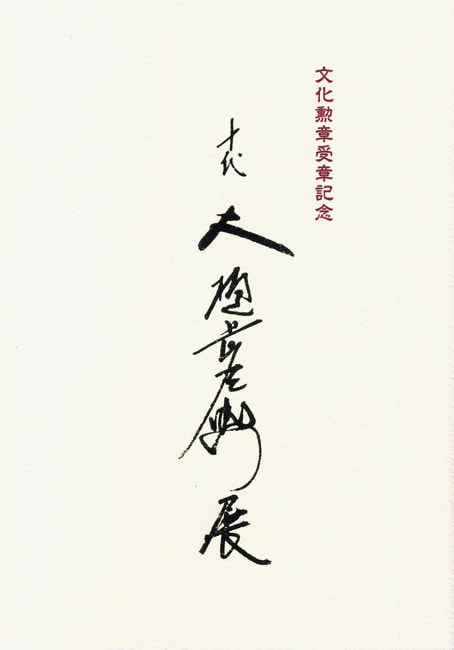 文化勲章受章記念
十代
大樋長左衛門
展